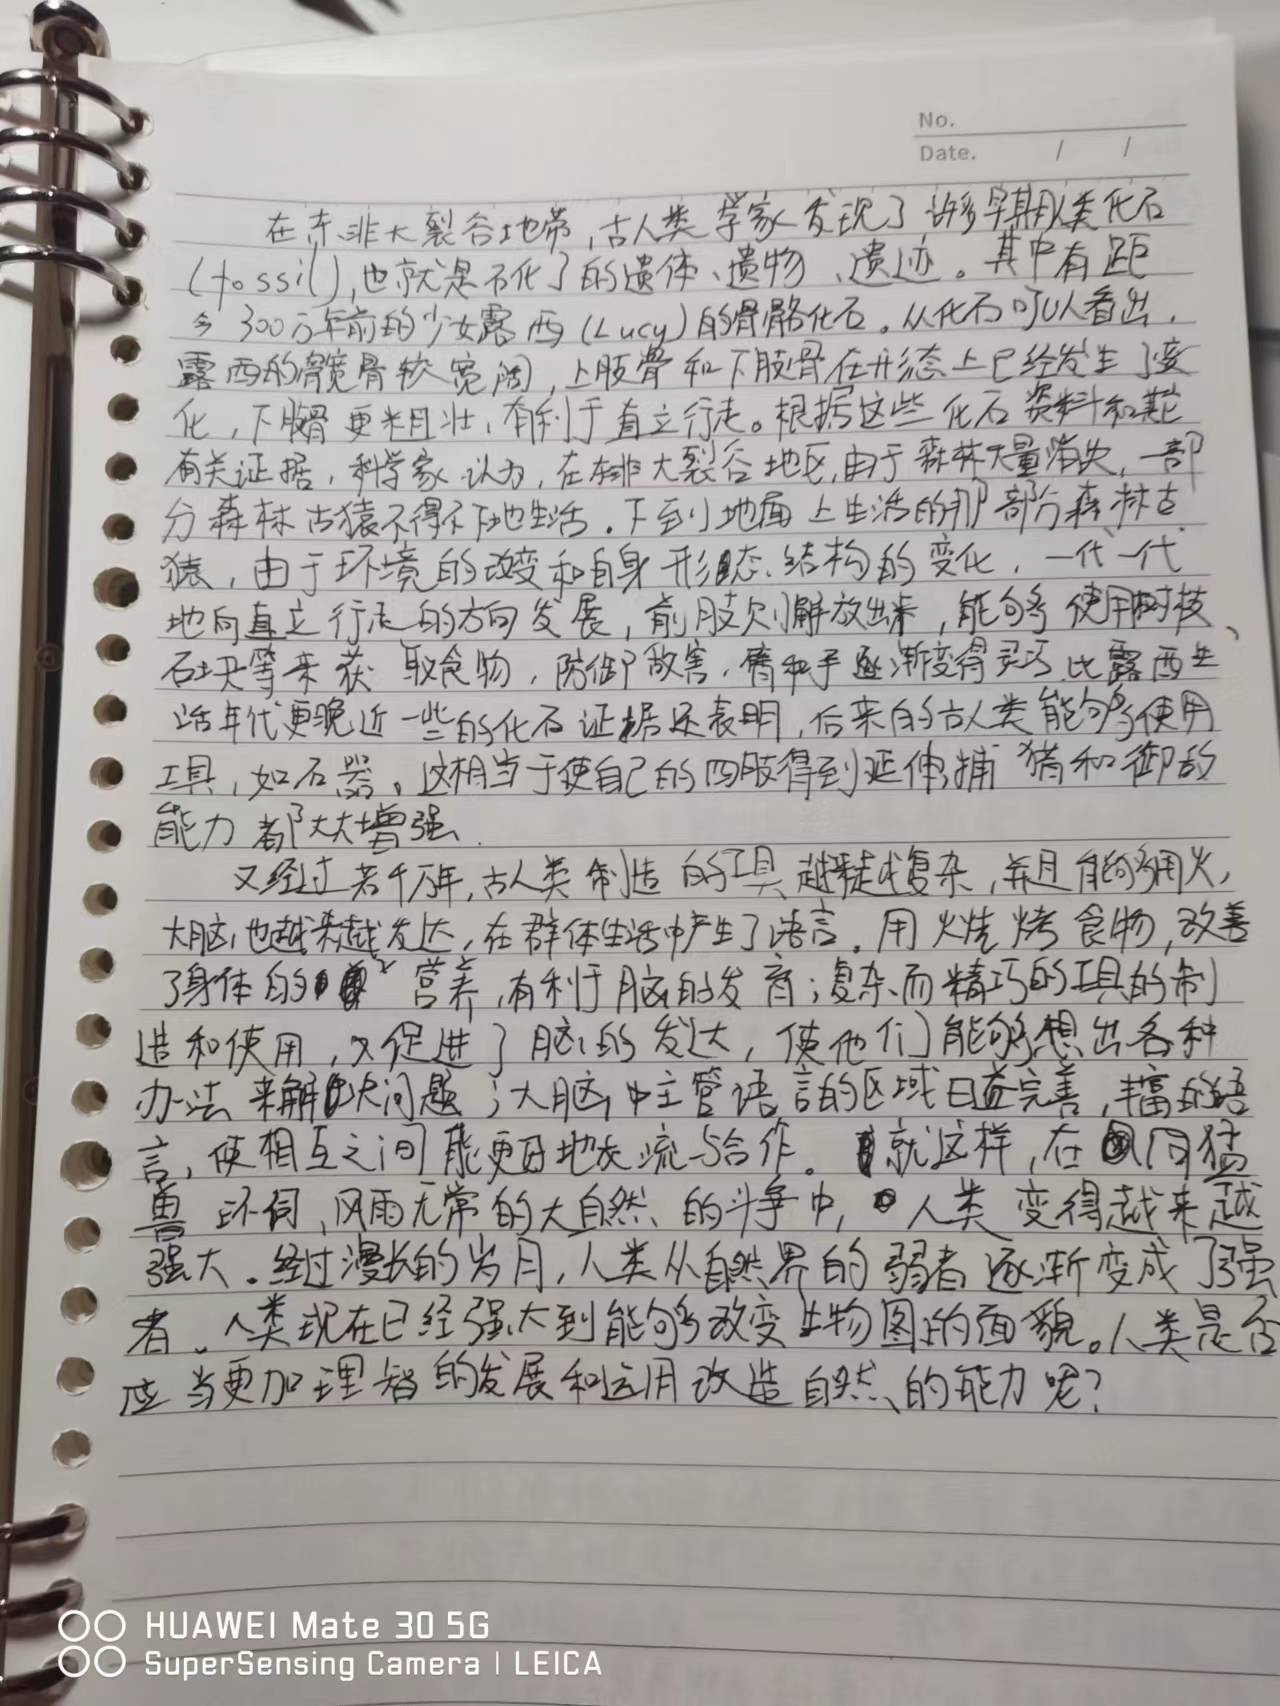 No.
Date. / /
在东非大裂谷地带,古人类学家发现了许多早期人类化石
(fossil),也就是石化了的遗体、遗物、遗迹。其中有距
今300万年前的少女露西(Lucy)的骨骼化石。从化石可以看出,
露西的髋骨较宽阔,上肢骨和下肢骨在形态上已经发生了变
化,下肢骨更粗壮,有利于直立行走。根据这些化石资料和其他
有关证据,科学家认为,在东非大裂谷地区,由于森林大量消失,一部
分森林古猿不得不下地生活。下到地面上生活的那部分森林古
猿,由于环境的改变和自身形态、结构的变化,一代一代
地向直立行走的方向发展,前肢则解放出来,能够使用树枝、
石块等来获取食物,防御敌害,臂和手逐渐变得灵巧.比露西生
活年代更晚近一些的化石证据还表明,后来的古人类能够使用
工具,如石器。这相当于使自己的四肢得到延伸,捕猎和御敌
能力都大大增强.
又经过若千万年,古人类制造的工具越来越复杂,并且能够用火,
大脑也越来越发达,在群体生活中产生了语言。用火烧烤食物,改善
了身体的营养,有利于脑的发育;复杂而精巧的工具的制
造和使用,又促进了脑的发达,使他们能够想出各种
办法来解决问题;大脑中主管语言的区域日益完善,丰富的语
言,使相互之间能更好地交流与合作。就这样,在同猛
兽环伺、风雨无常的大自然的斗争中,人类变得越来越
强大。经过漫长的岁月,人类从自然界的弱者逐渐变成了强
者。人类现在已经强大到能够改变生物圈的面貌。人类是否
应当更加理智的发展和运用改造自然的能力呢?
HUAWEI Mate 30 5G
SuperSensing Camera | LEICA